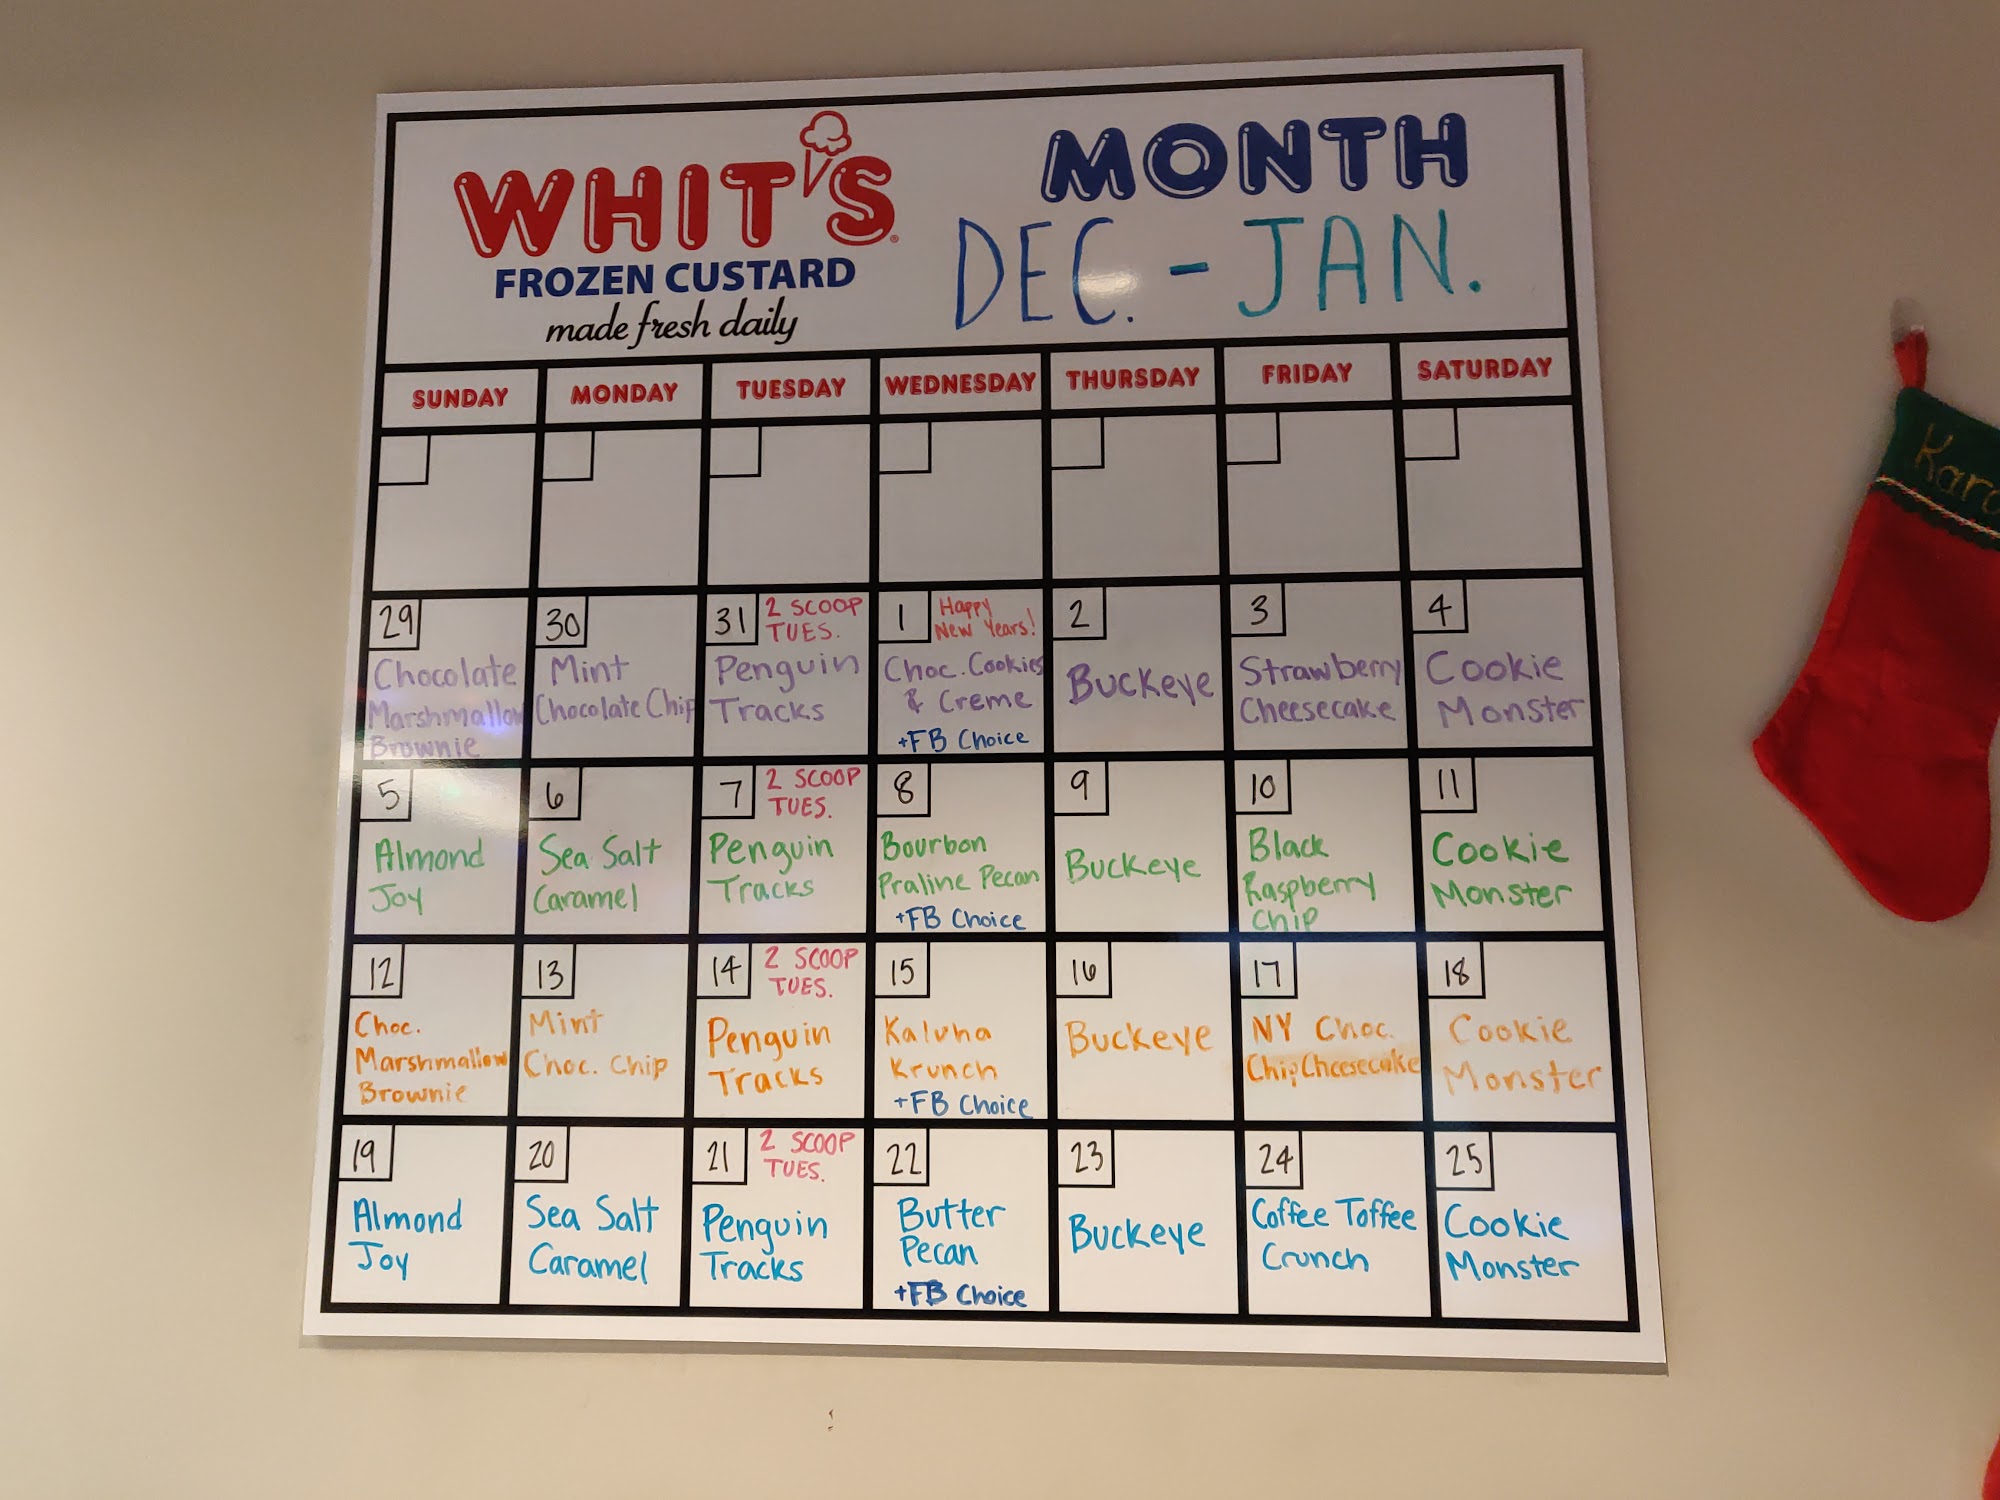 WHIT'S
FROZEN CUSTARD
made fresh daily
MONTH
DEC. - JAN.
SUNDAY MONDAY TUESDAY WEDNESDAY THURSDAY FRIDAY SATURDAY
29
Chocolate
Marshmallow
Brownie
30
Mint
Chocolate Chip
31
2 SCOOP
TUES.
Penguin
Tracks
1
Happy
New Years!
Choc. Cookies
& Creme
+FB Choice
2
Buckeye
3
Strawberry
Cheesecake
4
Cookie
Monster
5
Almond
Joy
6
Sea Salt
Caramel
7
2 SCOOP
TUES.
Penguin
Tracks
8
Bourbon
Praline Pecan
+FB Choice
9
Buckeye
10
Black
Raspberry
Chip
11
Cookie
Monster
12
Choc.
Marshmallow
Brownie
13
Mint
Choc. Chip
14
2 SCOOP
TUES.
Penguin
Tracks
15
Kaluha
Krunch
+FB Choice
16
Buckeye
17
NY Choc.
Chip Cheesecake
18
Cookie
Monster
19
Almond
Joy
20
Sea Salt
Caramel
21
2 SCOOP
TUES.
Penguin
Tracks
22
Butter
Pecan
+FB Choice
23
Buckeye
24
Coffee Toffee
Crunch
25
Cookie
Monster